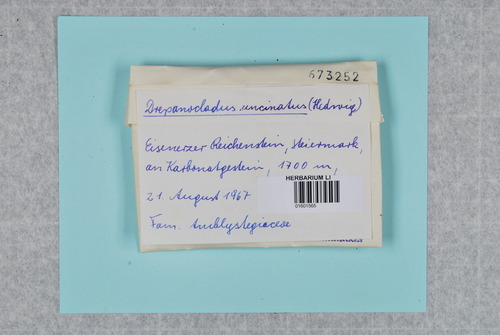 673252
Drepanocladus uncinatus (Hedwig)
Eisenerzer Reichenstein, Steiermark,
an Karbonatgestein, 1700 m,
HERBARIUM LI
21. August 1967
Fam. Amblystegiaceae